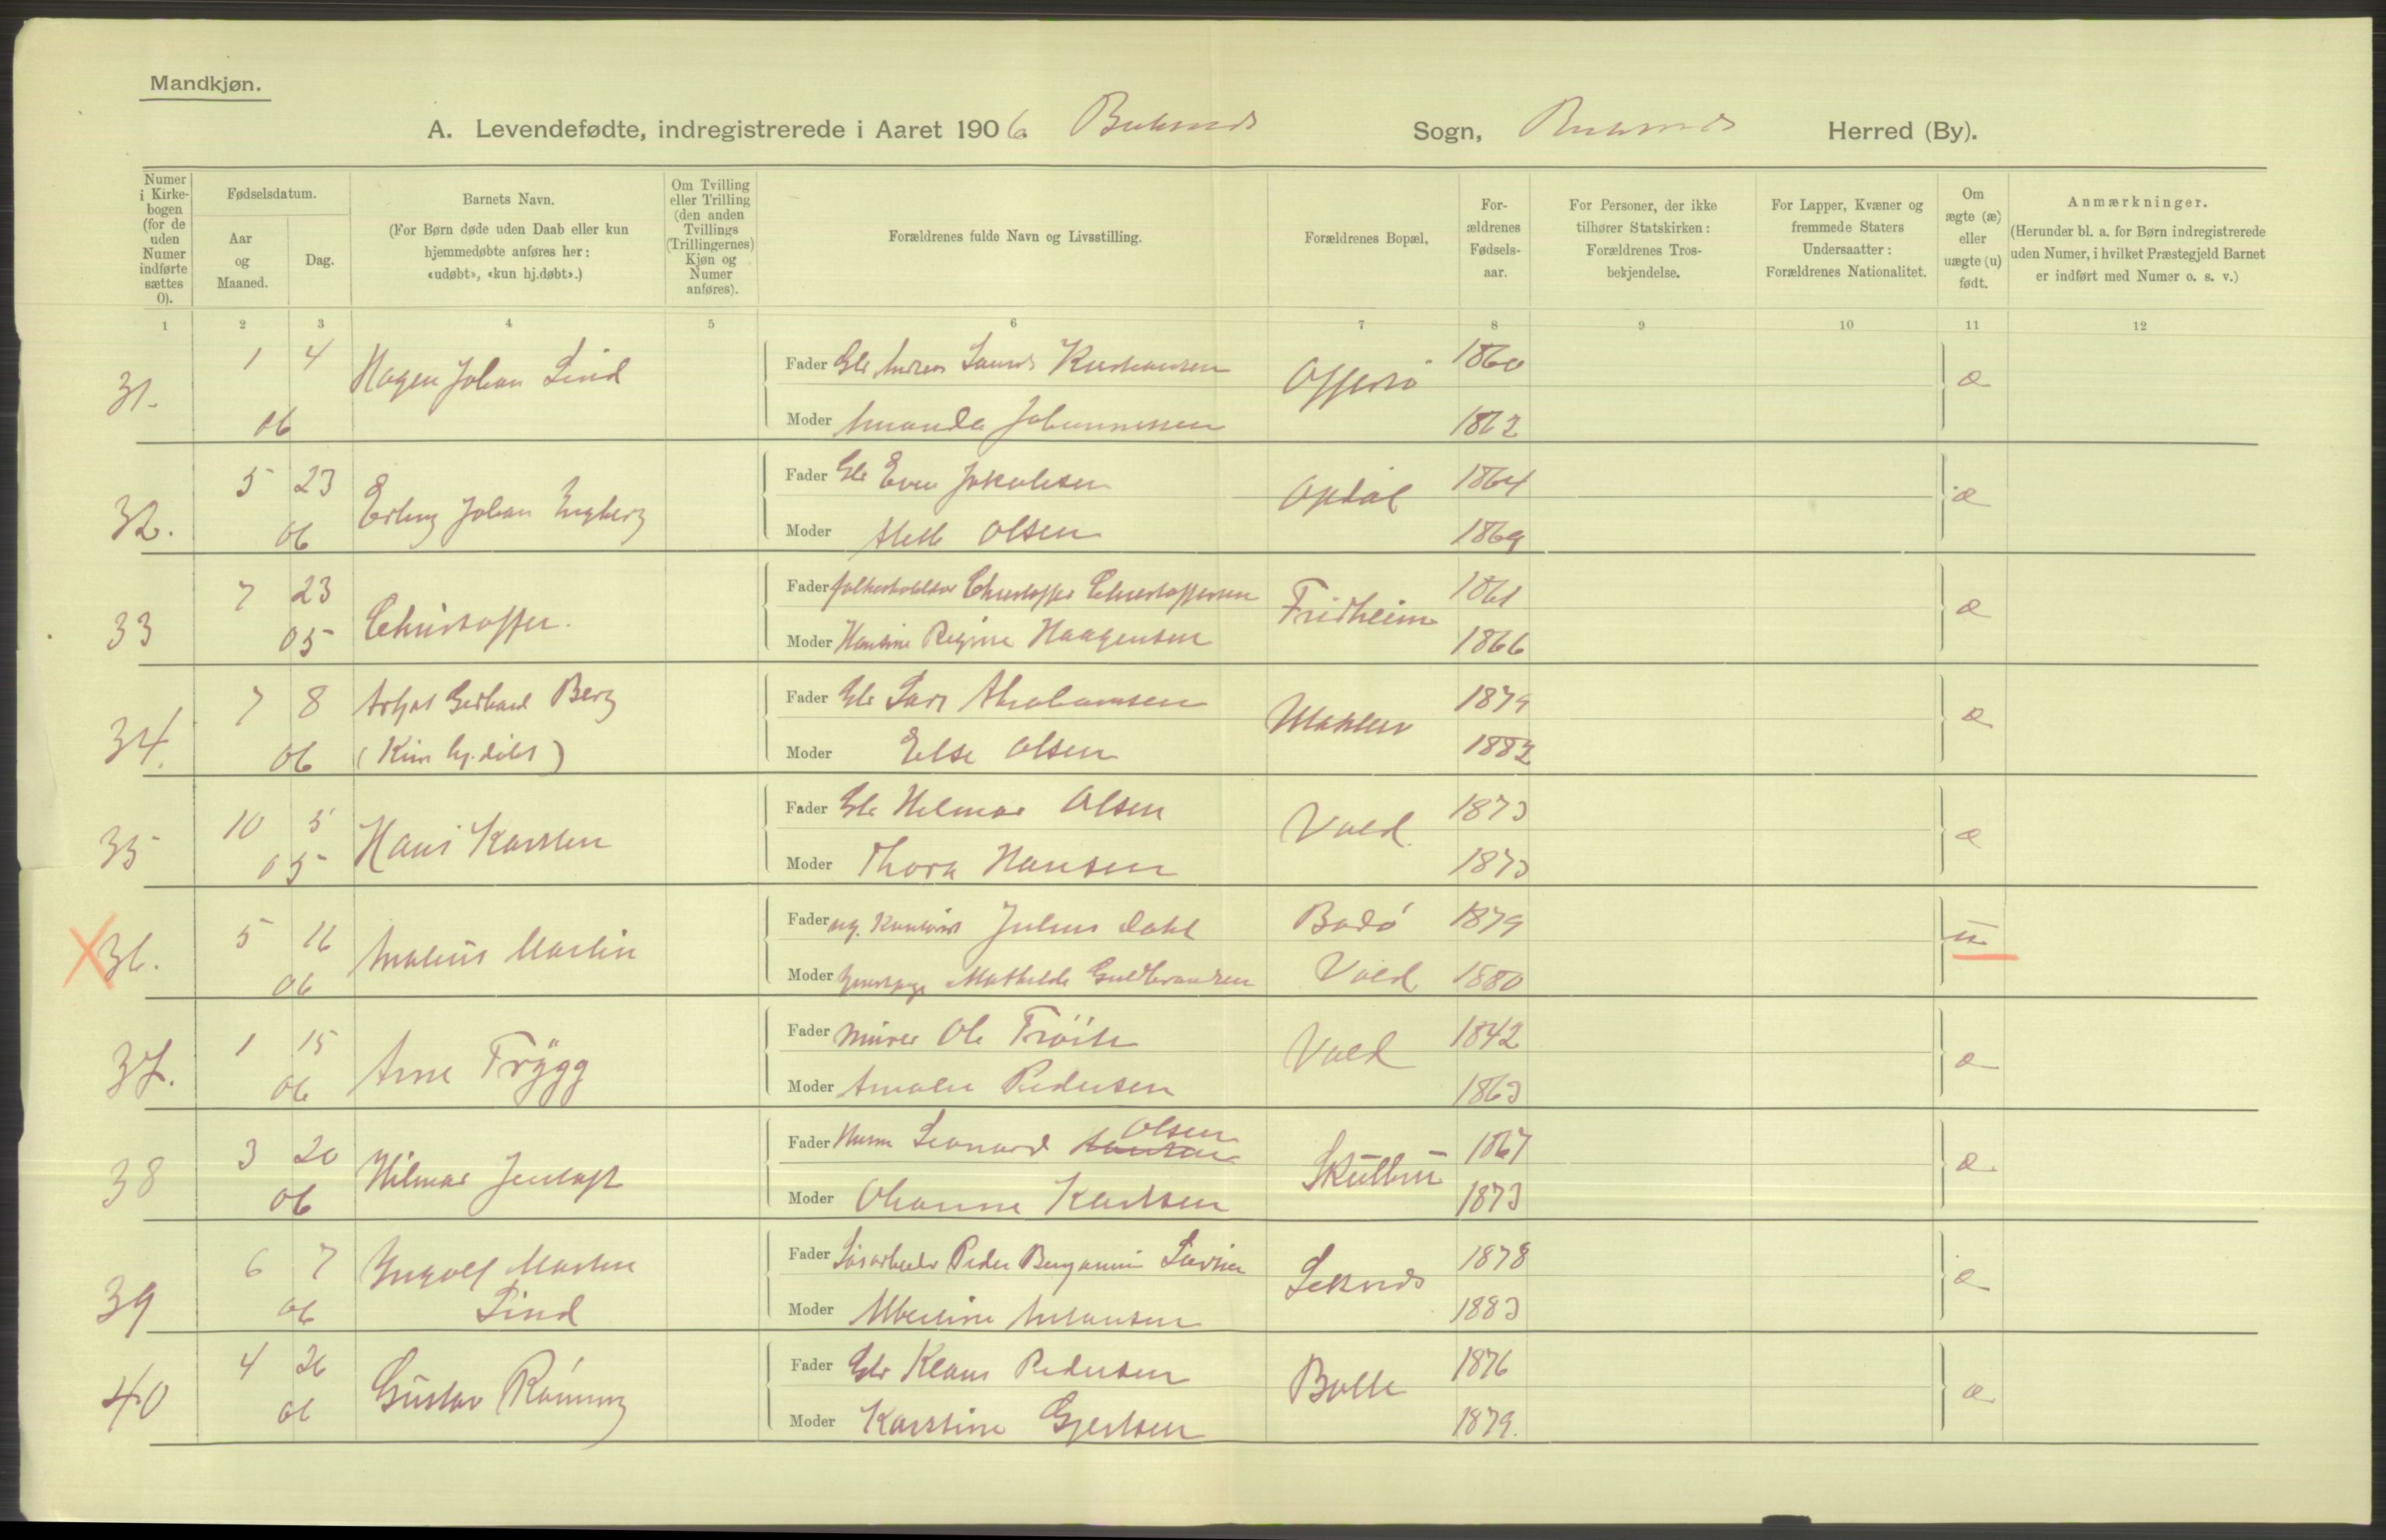 Mandkjøn.
A. Levendefødte, indregistrerede i Aaret 1906 Buksnes Sogn, Buksnes Herred (By).
Numer i Kirkebogen (for de uden Numer indførte sættes 0).
Fødselsdatum.
Aar og Maaned.
Dag.
Barnets Navn.
(For Børn døde uden Daab eller kun hjemmedøbte anføres her: «udøbt», «kun hj.døbt».)
Om Tvilling eller Trilling (den anden Tvillings (Trillingernes) Kjøn og Numer anføres).
Forældrenes fulde Navn og Livsstilling.
Forældrenes Bopæl,
Forældrenes Fødselsaar.
For Personer, der ikke tilhører Statskirken: Forældrenes Trosbekjendelse.
For Lapper, Kvæner og fremmede Staters Undersaatter: Forældrenes Nationalitet.
Om ægte (æ) eller uægte (u) født.
Anmærkninger.
(Herunder bl. a. for Børn indregistrerede uden Numer, i hvilket Præstegjeld Barnet er indført med Numer o. s. v.)
1 2 3 4 5 6 7 8 9 10 11 12
31. 1 4 06 Hagen Johan Lind
Fader Gbr Andreas Laurits Kristiansen Offersø 1860 æ
Moder Amanda Johannessen 1862
32. 5 23 06 Erling Johan Ingberg
Fader Gbr Even Jakobsen Opdal 1864 æ
Moder Aleth Olsen 1869
33 7 23 05 Christoffer.
Fader Christoffer Christoffersen Fridheim 1861 æ
Moder Hansine Regine Haagensen 1866
34. 7 8 06 Gerhard Berg
(Kun hj.døbt)
Fader Gbr Lars Abrahamsen 1879 æ
Moder Else Olsen 1882
35 10 5 05 Hans Karsten
Fader Gbr Hilmar Olsen Vold. 1873 æ
Moder Thora Hansen 1873
36. 5 16 06 Martin
Fader ug. Julius Dahl Bodø 1879 u
Moder Mathilde Guldbrandsen Vold 1880
37. 1 15 06 Arne Trygg
Fader Murer Ole Vold 1842 æ
Moder Amalie Pedersen 1863
38 3 20 06 Hilmar Jentoft
Fader Leonard Olsen 1867 æ
Moder Ohanna Karlsen 1873
39 6 7 06 Ingolf Martin
Lind
Fader Peder Benjamin Leknes 1878 æ
Moder Albertine Antonsen 1883
40 4 26 06 Gustav Røning
Fader Gbr Klaus Pedersen Bolle 1876 æ
Moder Karstine Gjertsen 1879.